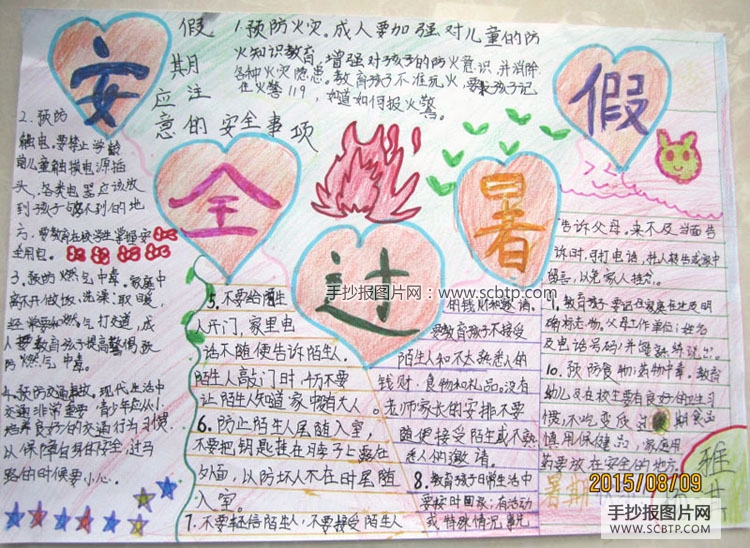 安
全
过
暑
假
假
期
应注
意的安全事项
1.预防火灾。成人要加强对儿童的防
火知识教育,增强对孩子的防火意识,并消除
各种火灾隐患。教育孩子不准玩火,要求孩子记
住火警119,知道如何报火警。
2.预防
触电。要禁止学龄
前儿童触摸电源插
头、各类电器应该放
到孩子够不到的地
方。要教育在校学生掌握安
全用电。
3.预防燃气中毒。家庭中
离不开做饭、洗澡、取暖,
经常要和燃气打交道,成
人要教育孩子提高警惕预
防燃气中毒。
4.预防交通事故。现代生活中
交通非常重要,青少年应从小
培养良好的交通行为习惯
以保障自身的安全,过马
路的时候要小心。
5.不要给陌生
人开门,家里电
话不随便告诉陌生人,
陌生人敲门时,切不要
让陌生人知道家中没有大人。
6.防止陌生人尾随入室,
不要把钥匙挂在脖子上露在
外面,以防坏人不在时尾随
入室。
7.不要轻信陌生人,不要接受陌生人
的钱财和邀请。
要教育孩子不接受
陌生人和不太熟悉人的
钱财、食物和礼品。没有
老师家长的安排不要
随便接受陌生或不熟
悉人的邀请。
8.教育孩子日常生活中
要按时回家,有活动
或特殊情况,事先
告诉父母。来不及当面告
诉时,可打电话,托人转告或家中
留言,以免家人担心。
9.教育孩子要记住家庭住址及明
确标志物,父母工作单位,姓名
及电话号码,并要熟练说出。
10.预防食物药物中毒。教育
幼儿及在校生要有良好的卫生习
惯,不吃变质过期食品
慎用保健品,家庭用
药要放在安全的地方。
暑期
雅
手抄报图片网:www.scbtp.com
2015/08/09
手抄报图片网
WWW.SCBTP.COM